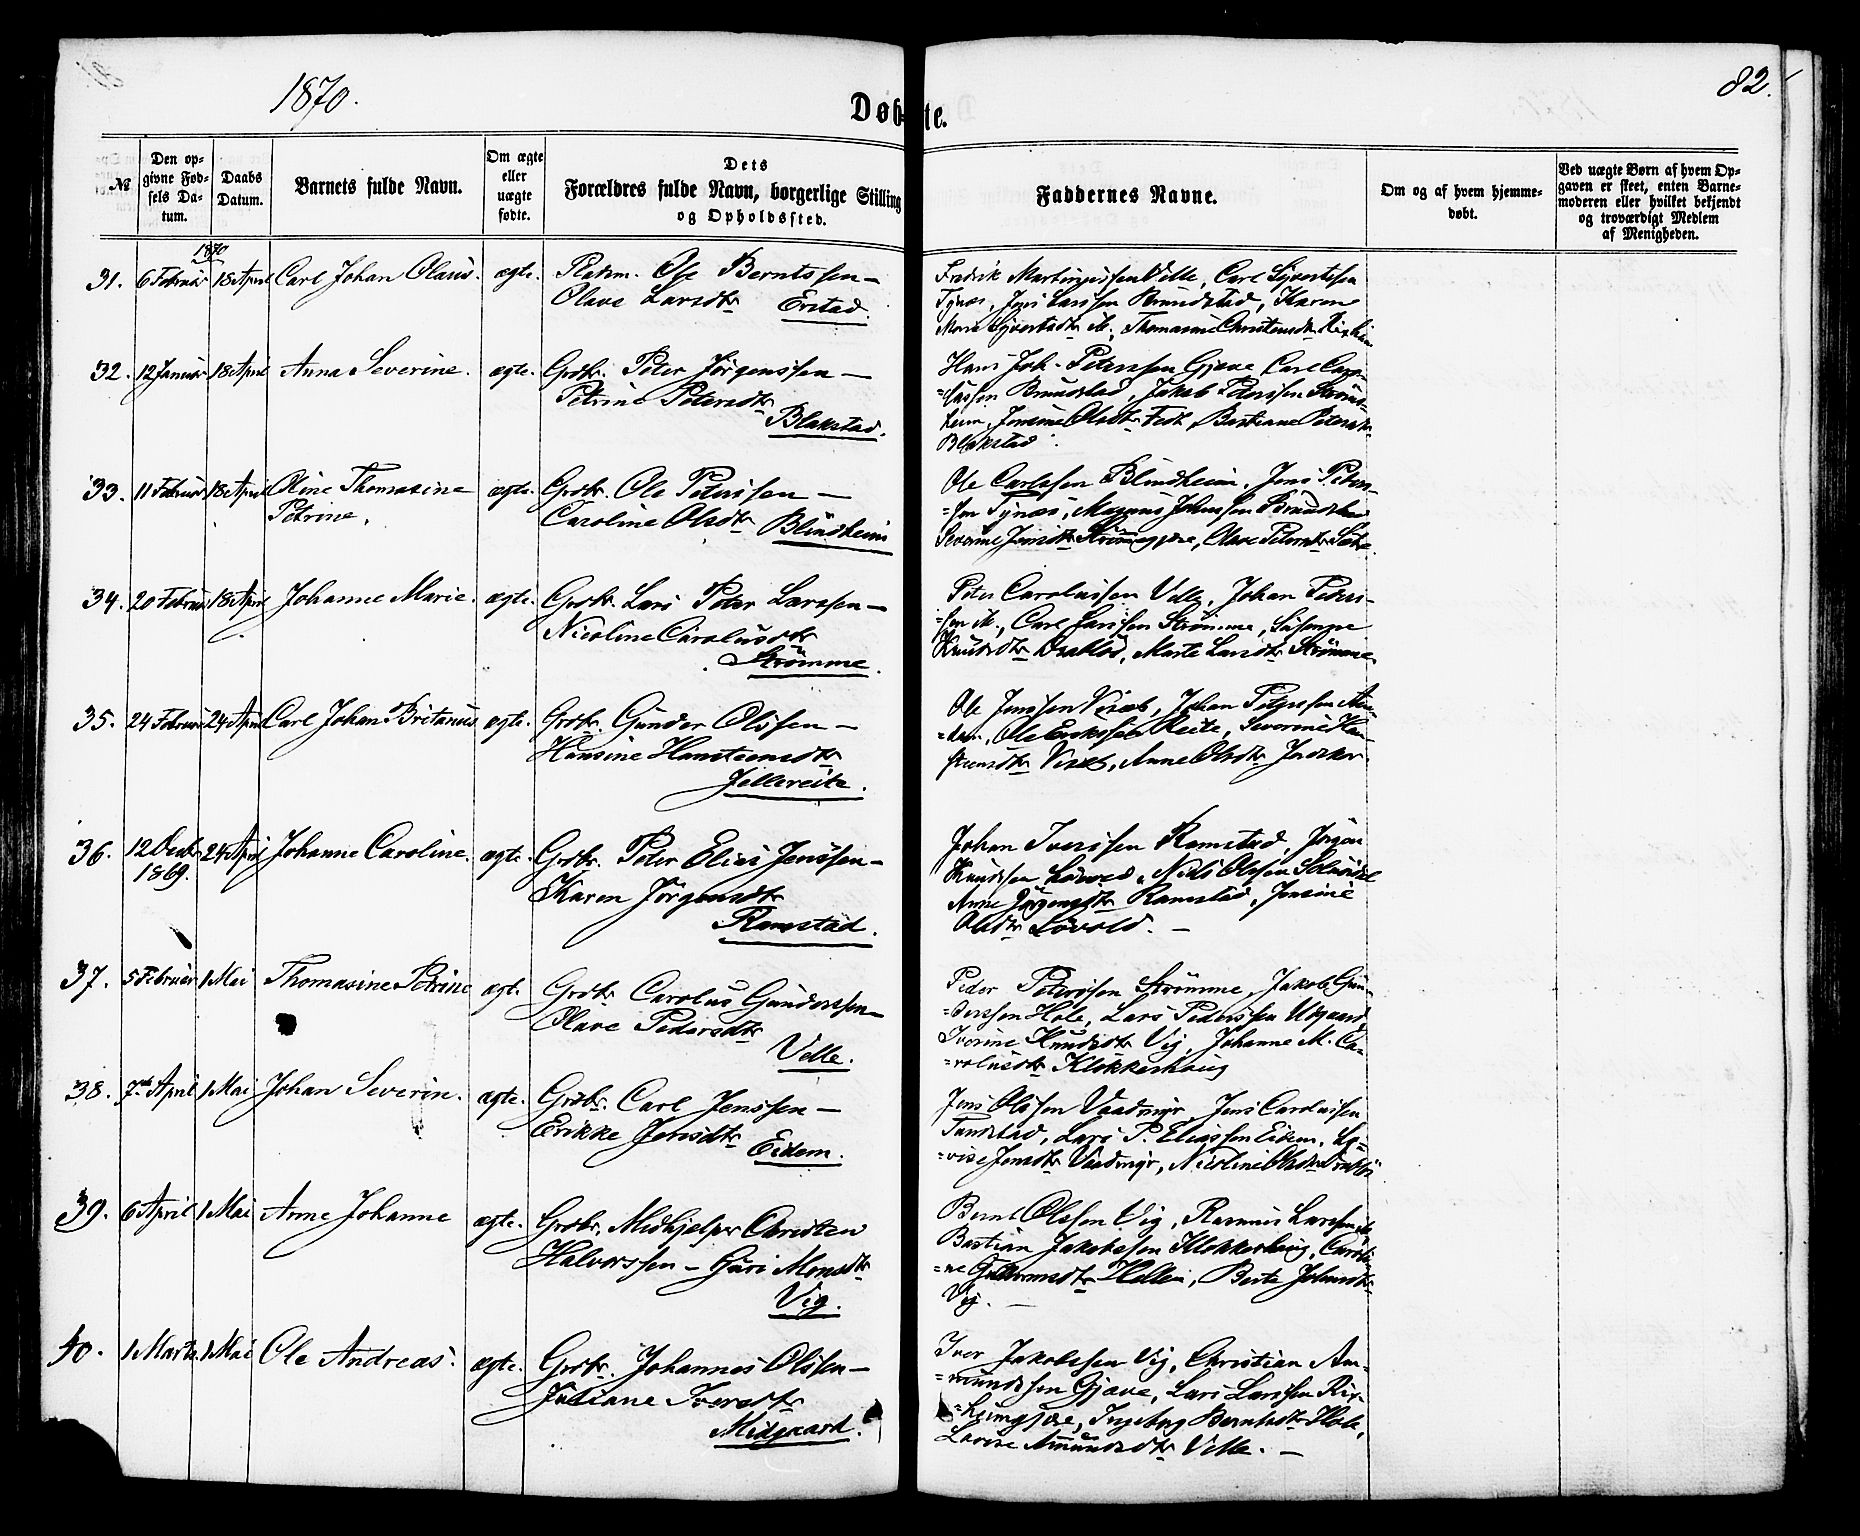 1870.
Døbte.
82.
№
Den opgivne Fødsels Datum.
Daabs Datum.
Barnets fulde Navn.
Om ægte eller uægte fødte.
Dets Forældres fulde Navn, borgerlige Stilling og Opholdssted.
Faddernes Navne.
Om og af hvem hjemmedøbt.
Ved uægte Børn af hvem Opgaven er skeet, enten Barnemoderen eller hvilket bekjendt og troværdigt Medlem af Menigheden.
1870
31. 6 Februar 18 April Carl Johan Olaus. ægte. Pldsm. Ole Berntssen –
Olave Larsdtr Erstad.
Velle, Carl Syvertssen
Tynæs, Jens Larssen Brundstad, Karen
Syvertsdtr
32. 12 Januar 18 April Anna Severine. ægte. Grdbr. Peter Jørgenssen –
Petrine Petersdtr
Blakstad.
Hans Joh. Peterssen Gjæve, Carl
Brundstad, Jakob Peterssen Strøms-
heim, Jensine Olsdtr Bastiane Petersdtr
Blakstad.
33. 11 Februar 18 April Oline Thomasine ægte. Grdbr. Ole Peterssen –
Petrine.
Caroline Olsdtr Blindheim
Ole Carlssen Blindheim, Jens Peters-
=sen Tynæs, Johnssen Brundstad
Severine Jensdtr Olave Petersdtr
34. 20 Februar 18 April Johanne Marie. ægte. Grdbr. Lars Peter Larssen –
Nicoline Carolusdtr
Strømme.
Peter Carolussen Velle, Johan Peders-
=sen Carl Larssen Strømme, Susanne
Knudsdtr Drabløs, Marte Larsdtr Strømme.
35. 24 Februar 24 April Carl Johan Britanus ægte. Grdbr. Gunder Olssen –
Hansine Hansteensdtr
Jellereite.
Ole Jenssen Viset, Johan Peterssen
Ole Erikssen Reite, Severine Han-
steensdtr Viset, Anne Olsdtr
36. 12 Decbr 24 April Johanne Caroline. ægte. Grdbr. Peter Elias Jenssen –
1869.
Karen Jørgensdtr
Ramstad.
Johan Iverssen Ramstad, Jørgen
Knudssen Løvold, Niels Olssen
Anne Jørgensdtr Ramstad, Jensine
Olsdtr Løvold. –
37. 5 Februar 1 Mai Thomasine Petrine ægt. Grdbr Carolus Gunderssen –
Olave Pedersdtr
Velle.
Peder Peterssen Strømme, Jakob Gun-
=derssen Hole, Lars Pederssen Uigaard,
Iverine Knudsdtr Vig, Johanne M. Ca-
=rolusdtr Klokkerhaug
38. 7de April 1 Mai Johan Severin. ægte. Grdbr. Carl Jenssen –
Erikke Jensdtr Eidem.
Jens Olssen Vaadmyr, Jens Carolussen
Tandstad, Lars P. Eliassen Eidem, Lo-
=vise Jensdtr Vaadmyr, Nicoline Olsdtr
39. 6 April 1 Mai Anne Johanne ægte. Grdbr. Medhjelper Christen
Halvorssen – Guri Monsdtr
Vig.
Bernt Olssen Vig, Rasmus Larssen
Bastian Jakobssen Klokkerhaug,
Berte Johnsdtr
Vig. –
40. 1 Marts 1 Mai Ole Andreas. ægte. Grdbr. Johannes Olssen –
Juliane Iversdtr
Midgaard.
Iver Jakobssen Vig, Christian Am-
=mundssen Gjæve, Lars Larssen Rix-
=heimgjære, Ingeborg Berntsdtr Hole,
Lovise Ammundsdtr Velle. –